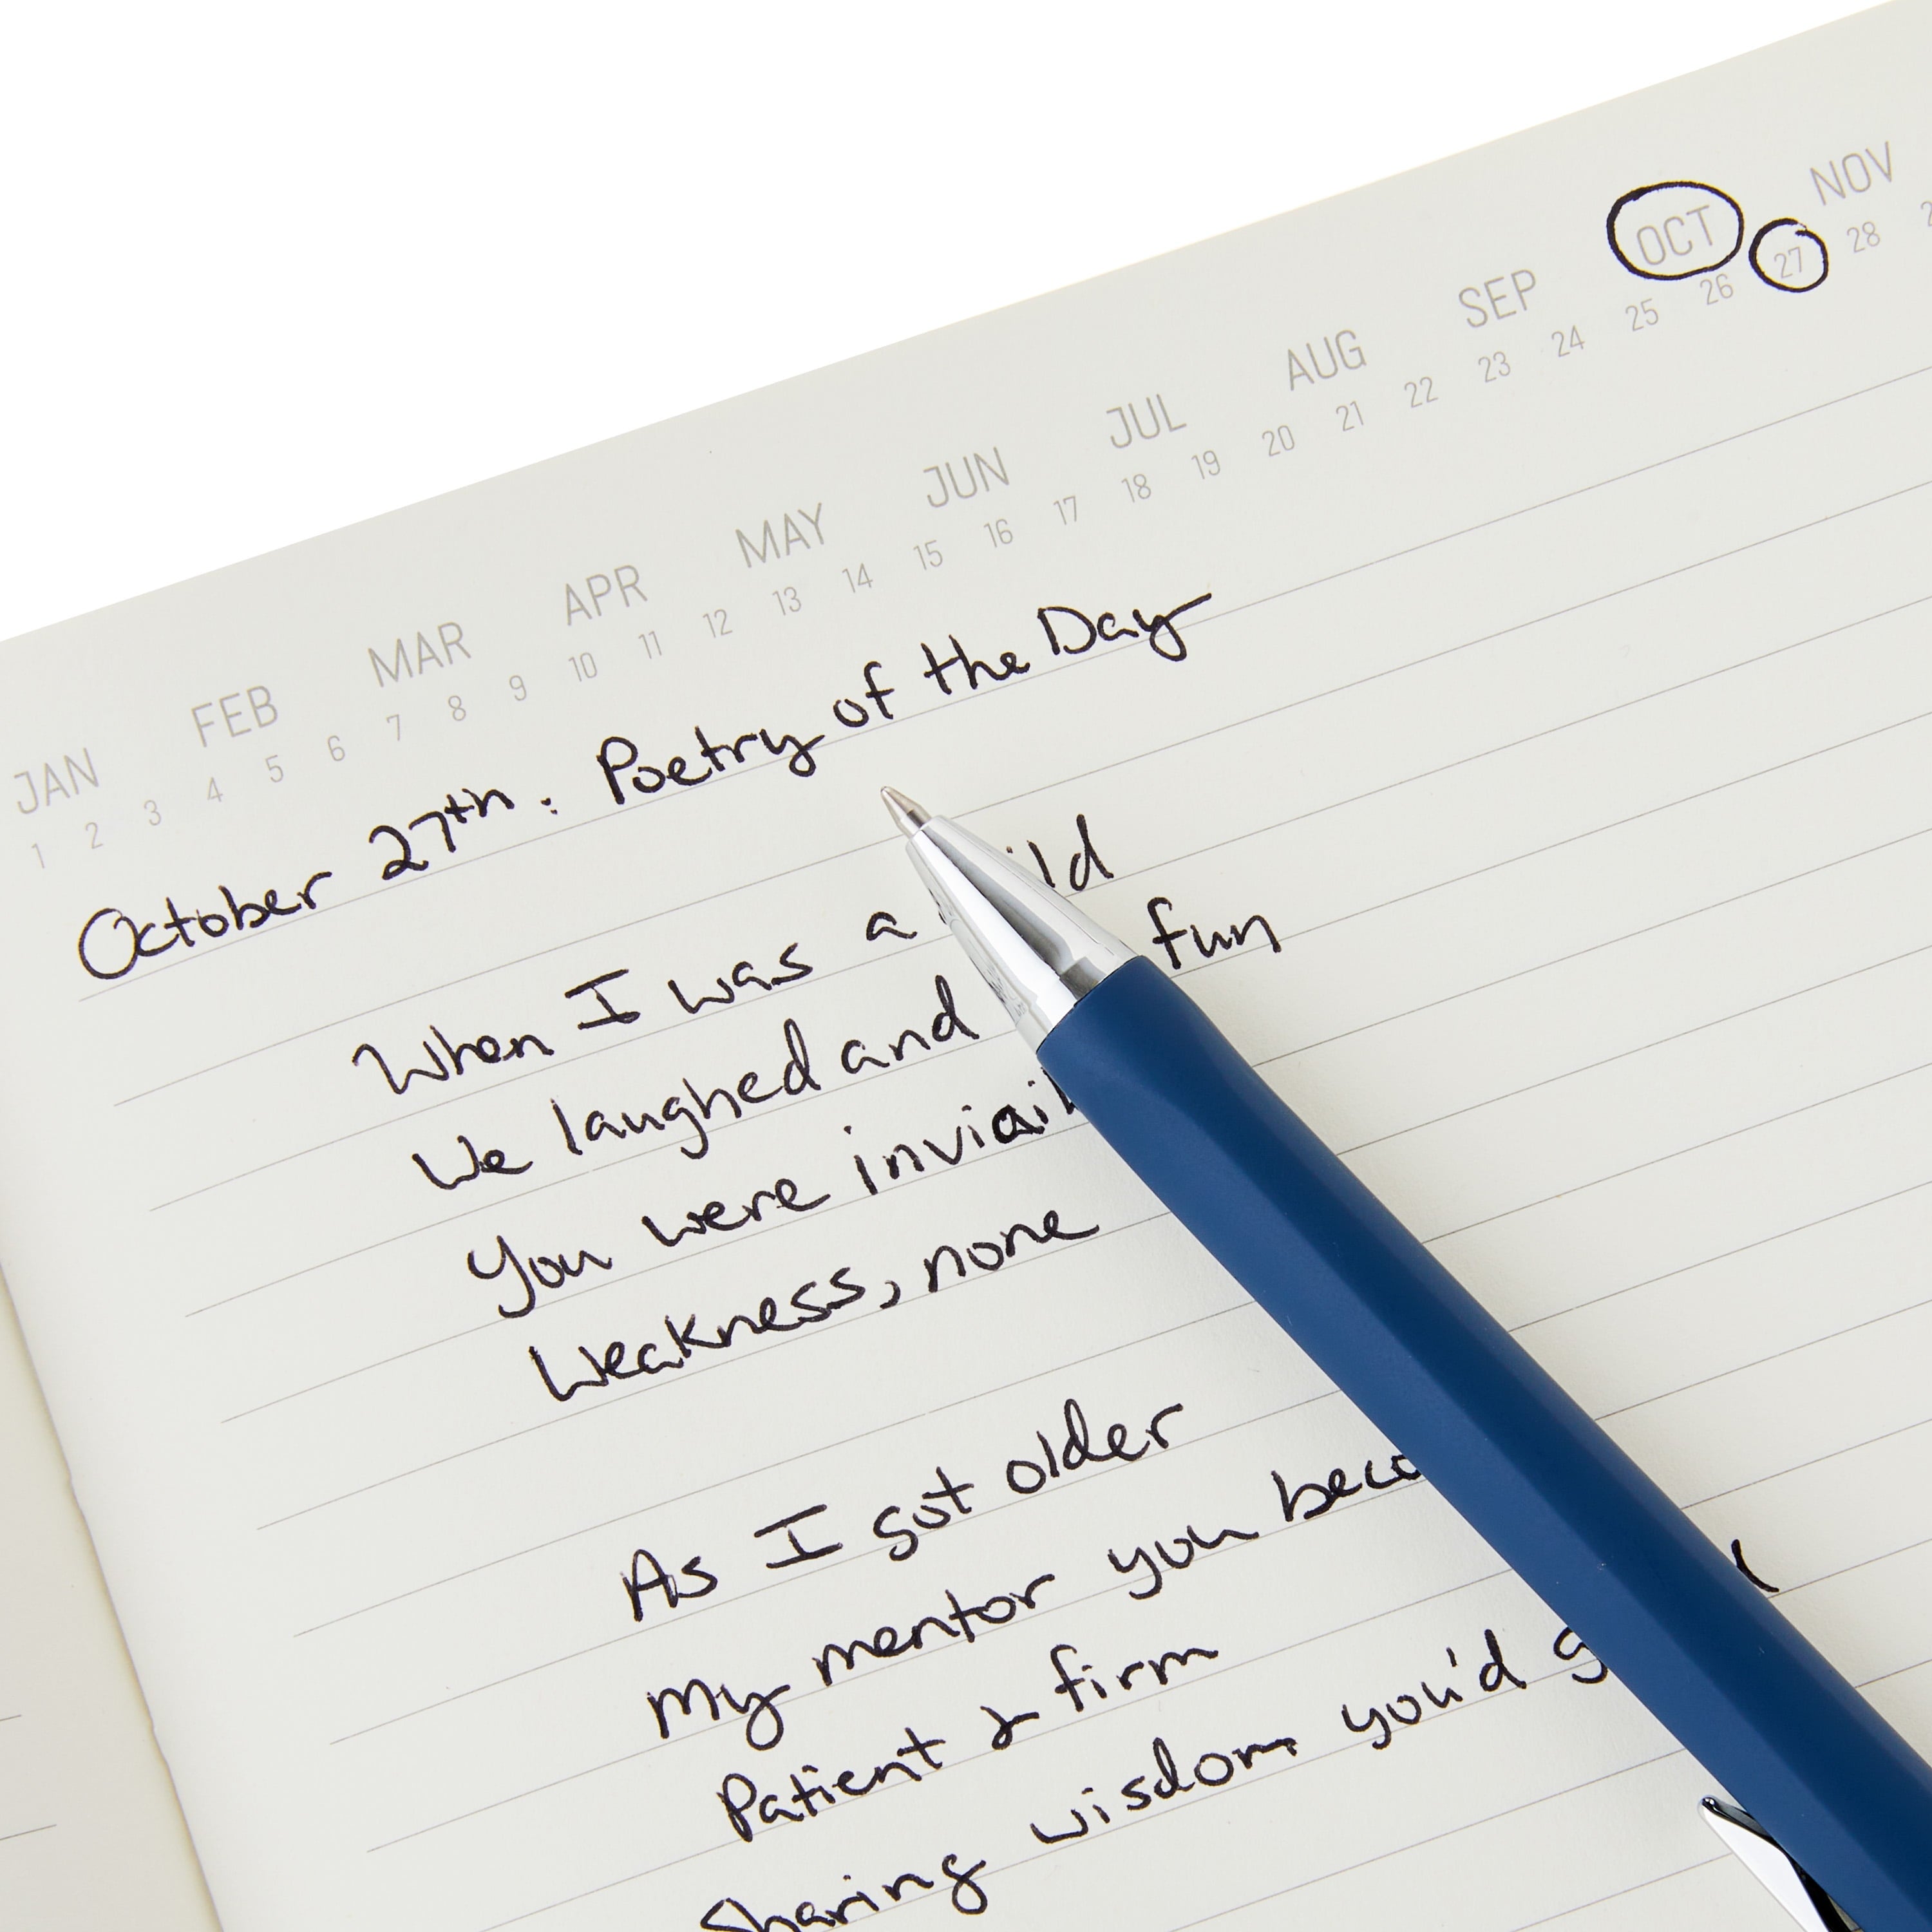 JAN FEB MAR APR MAY JUN JUL AUG SEP OCT NOV
1 2 3 4 5 6 7 8 9 10 11 12 13 14 15 16 17 18 19 20 21 22 23 24 25 26 27 28
October 27th: Poetry of the Day
When I was a
We laughed and fun
You were
Weakness, none
As I got older
My mentor you
Patient & firm
Sharing wisdom you'd